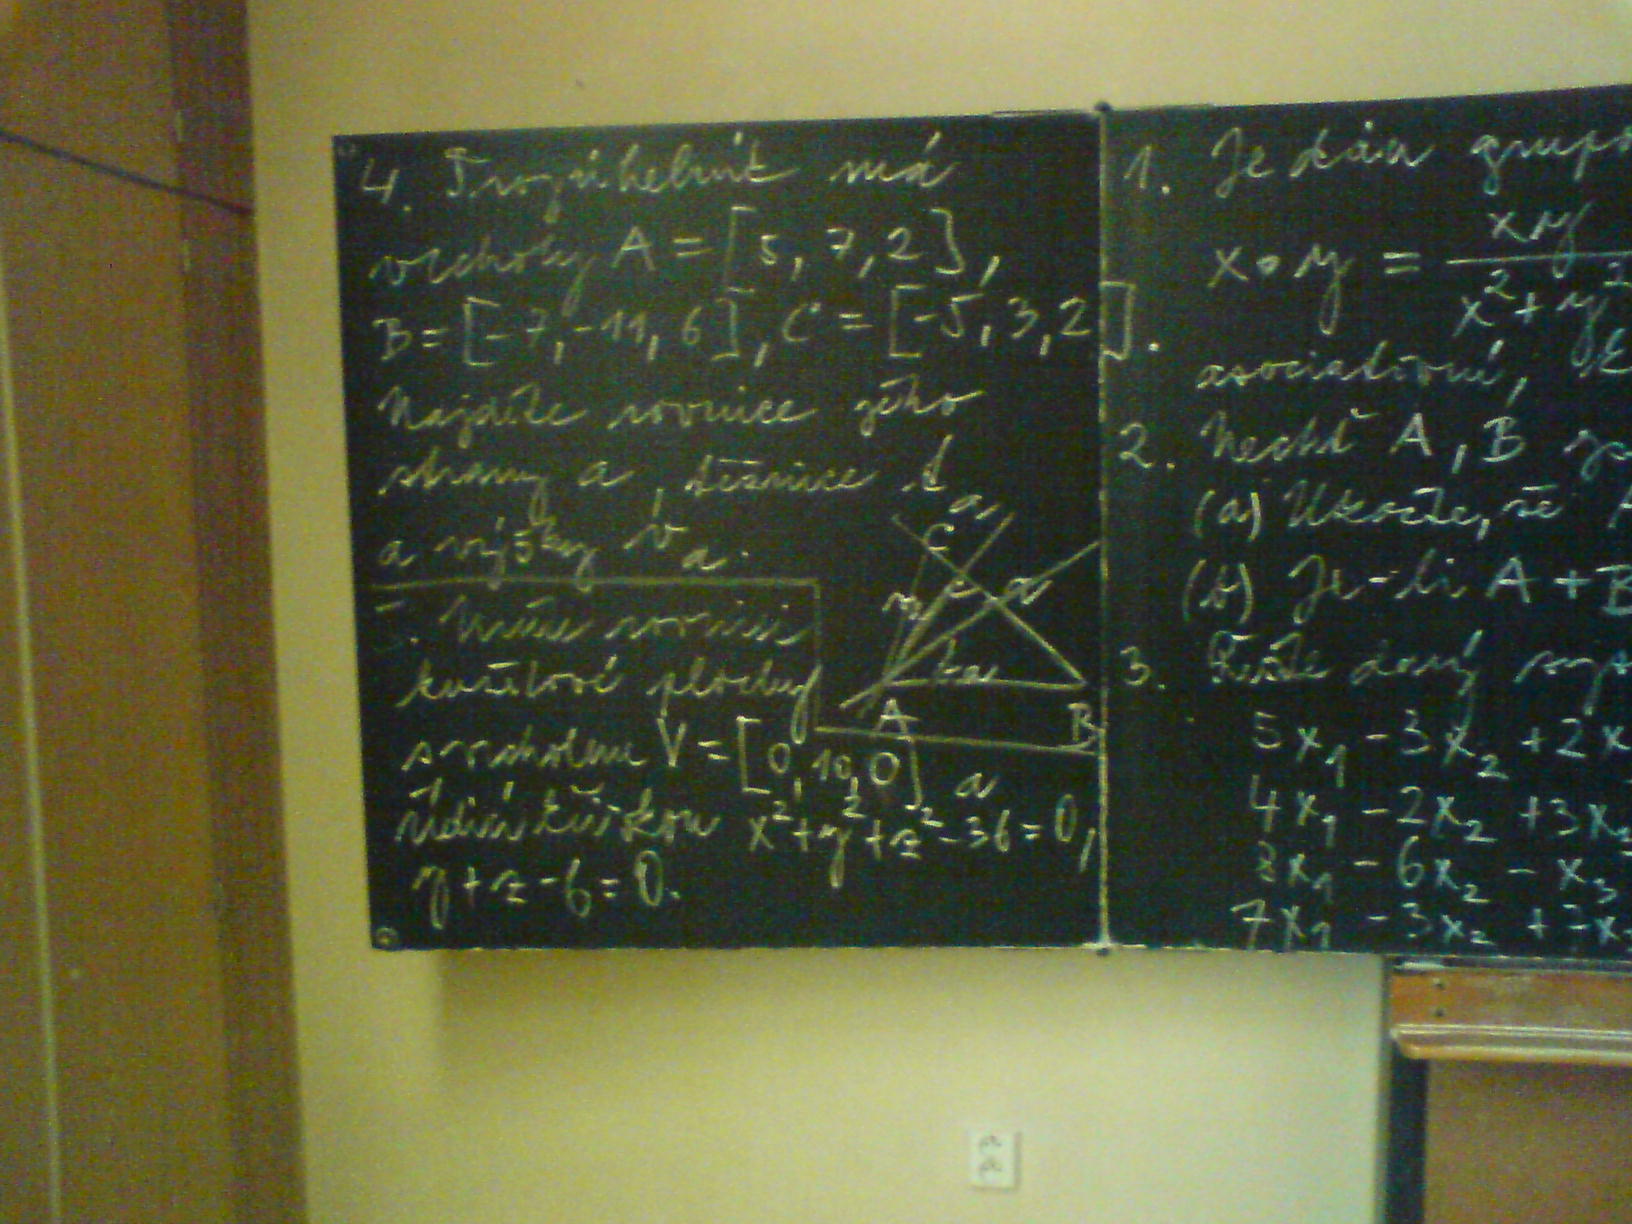 4. Trojúhelník má
vrcholy A = [5, 7, 2],
B = [-7, -11, 6], C = [-5, 3, 2].
Najděte rovnice jeho
strany a, těžnice t_a
a výšky v_a.
C
a
v
t_a
A
B
5. Určete rovnici
kuželové plochy
s vrcholem V = [0, 10, 0] a
řídící křivkou x²+y²+z²-36=0,
y+z-6=0.
1. Je dán grupo
x∘y = xy / x²+y²
asociativní,
2. Nechť A, B js
(a) Ukažte, že A
(b) Je-li A + B
3. Řešte daný sys
5x₁ - 3x₂ + 2x
4x₁ - 2x₂ + 3x₃
8x₁ - 6x₂ - x₃
7x₁ - 3x₂ + 7x₃